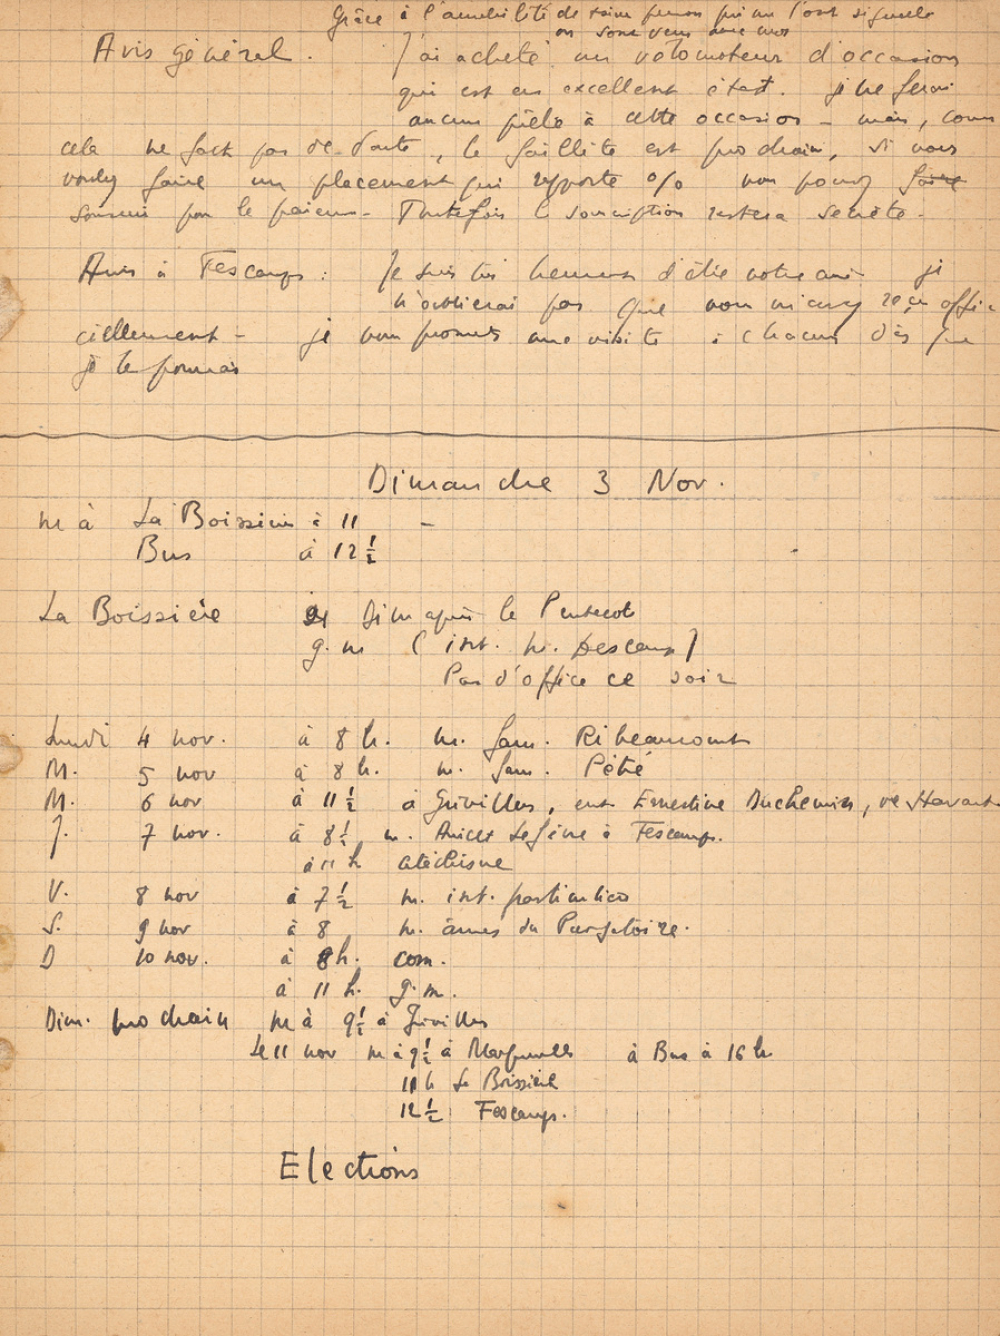 Grâce à l'amabilité de
on sont venu avec moi
Avis général. J'ai acheté un vélomoteur d'occasion
qui est en excellent état. je ne ferai
aucune à cette occasion - mais, comme
cela ne fait pas de doute, la faillite est prochaine, si vous
voulez faire un placement qui rapporte % vous pouvez faire
par le - Toutefois la souscription restera secrète.
Avis à Fescamps : Je suis très heureux d'être votre ami je
n'oublierai pas que vous m'avez reçu offi-
ciellement - je vous promets une visite à chacun dès que
je le pourrai
Dimanche 3 Nov.
m à La Boissière à 11 -
Bus à 12 1/2
La Boissière Dim après la Pentecote
g. m (int. m. Descamps)
Pas d'office ce soir
Lundi 4 nov. à 8 h. m. fam. Ribeaucourt
M. 5 nov à 8 h. m. fam. Pétré
M. 6 nov à 11 1/2 à Grivillers, ent Ernestine Duchemin, ve
J. 7 nov. à 8 1/2 m. Anicet Lefèvre à Fescamps.
à 11 h catéchisme
V. 8 nov à 7 1/2 m. int. particulière
S. 9 nov à 8 m. âmes du Purgatoire.
D 10 nov. à 8 h. com.
à 11 h. g. m.
Dim. prochain m à 9 1/2 à Grivillers
Le 11 nov m à 9 1/2 à Marquivillers à Bus à 16 h
11 h La Boissière
12 1/2 Fescamps.
Elections